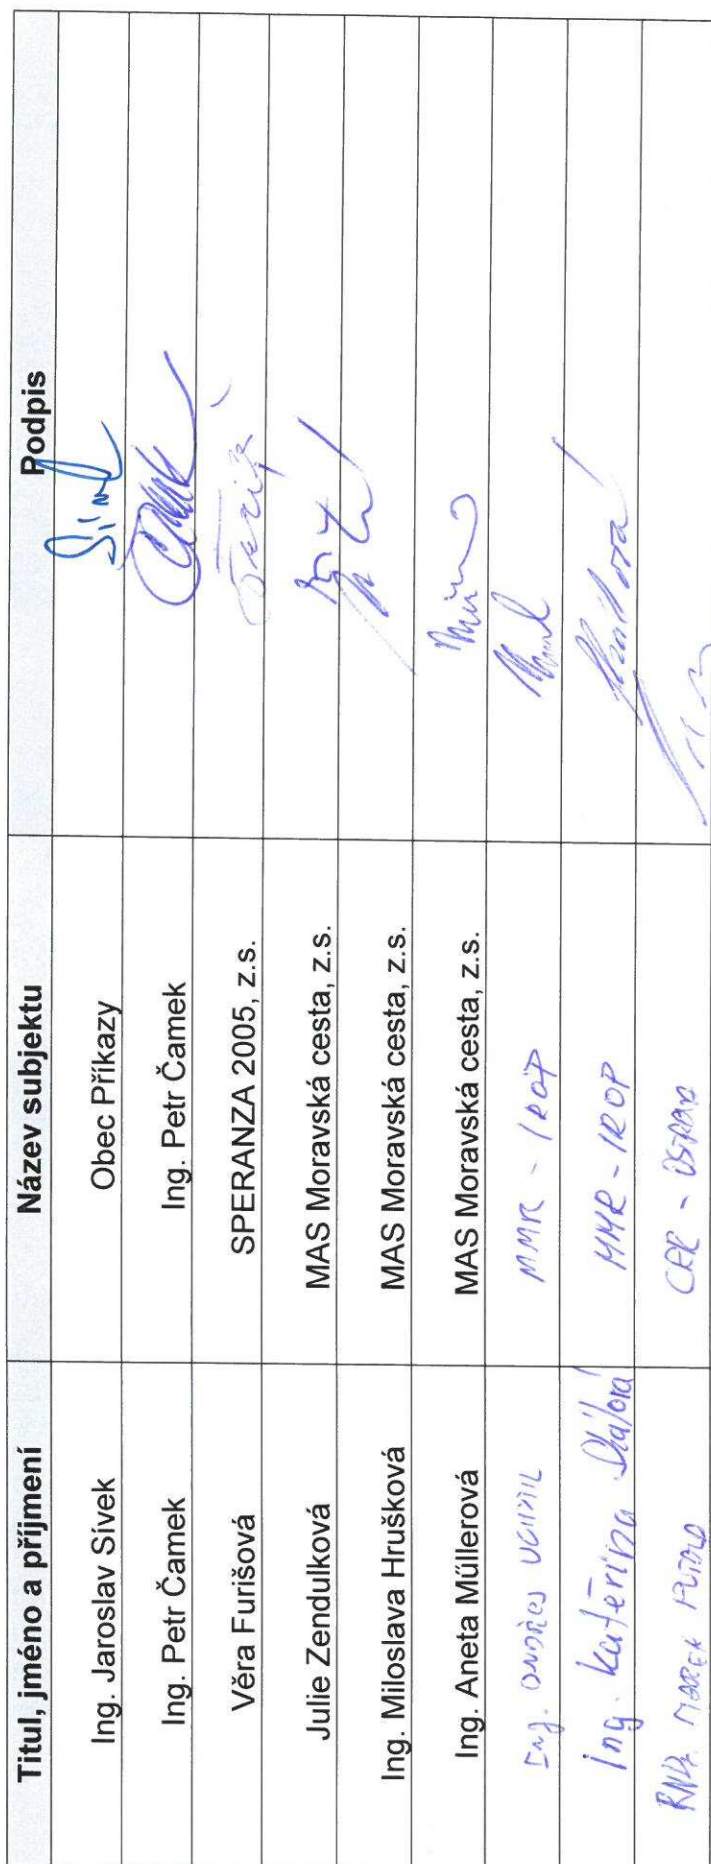 Titul, jméno a příjmení Název subjektu Podpis
Ing. Jaroslav Sívek Obec Příkazy
Ing. Petr Čamek Ing. Petr Čamek
Věra Furišová SPERANZA 2005, z.s.
Julie Zendulková MAS Moravská cesta, z.s.
Ing. Miloslava Hrušková MAS Moravská cesta, z.s.
Ing. Aneta Müllerová MAS Moravská cesta, z.s.
Ing. ONDŘEJ MMR - IROP
Ing. Kateřina MMR - IROP
MAREK